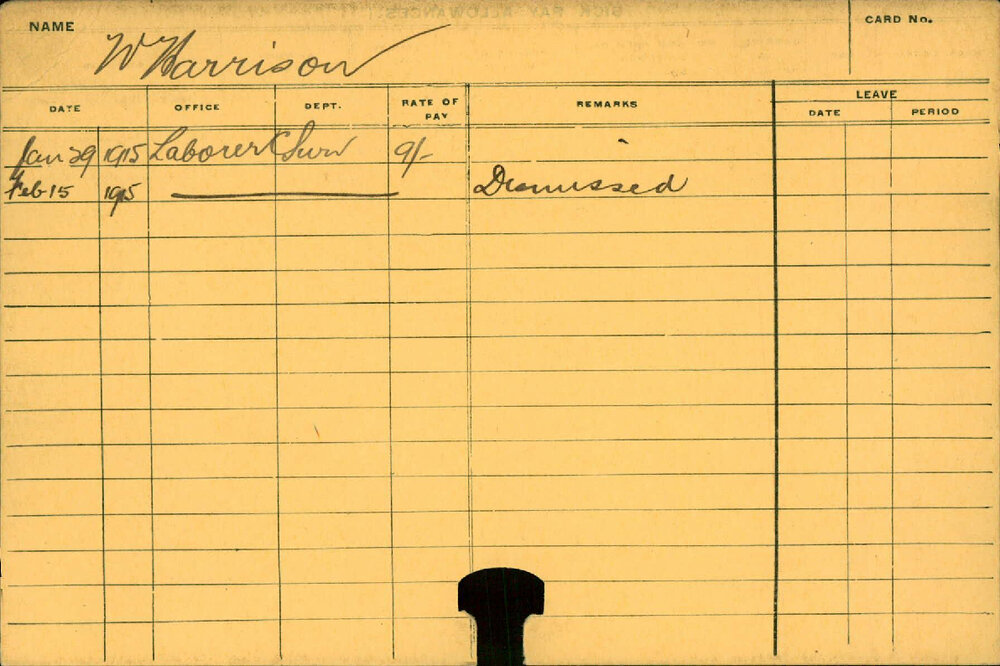 NAME W Harrison CARD No.
DATE OFFICE DEPT. RATE OF PAY REMARKS LEAVE
DATE PERIOD
Jan 29 1915 Laborer 9/-
Feb 15 1915 Dismissed